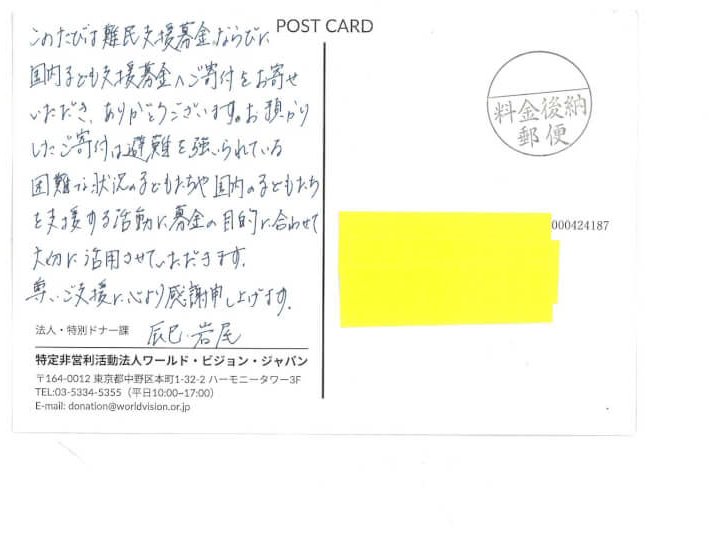 POST CARD
このたびは難民支援募金ならびに
国内子ども支援募金へご寄付をお寄せ
いただき、ありがとうございます。お預かり
したご寄付は避難を強いられている
困難な状況の子どもたちや国内の子どもたち
を支援する活動に募金の目的に合わせて
大切に活用させていただきます。
尊いご支援に心より感謝申し上げます。
法人・特別ドナー課 辰巳・岩尾
特定非営利活動法人ワールド・ビジョン・ジャパン
〒164-0012 東京都中野区本町1-32-2 ハーモニータワー3F
TEL:03-5334-5355（平日10:00~17:00）
E-mail: donation@worldvision.or.jp
料金後納
郵便
000424187